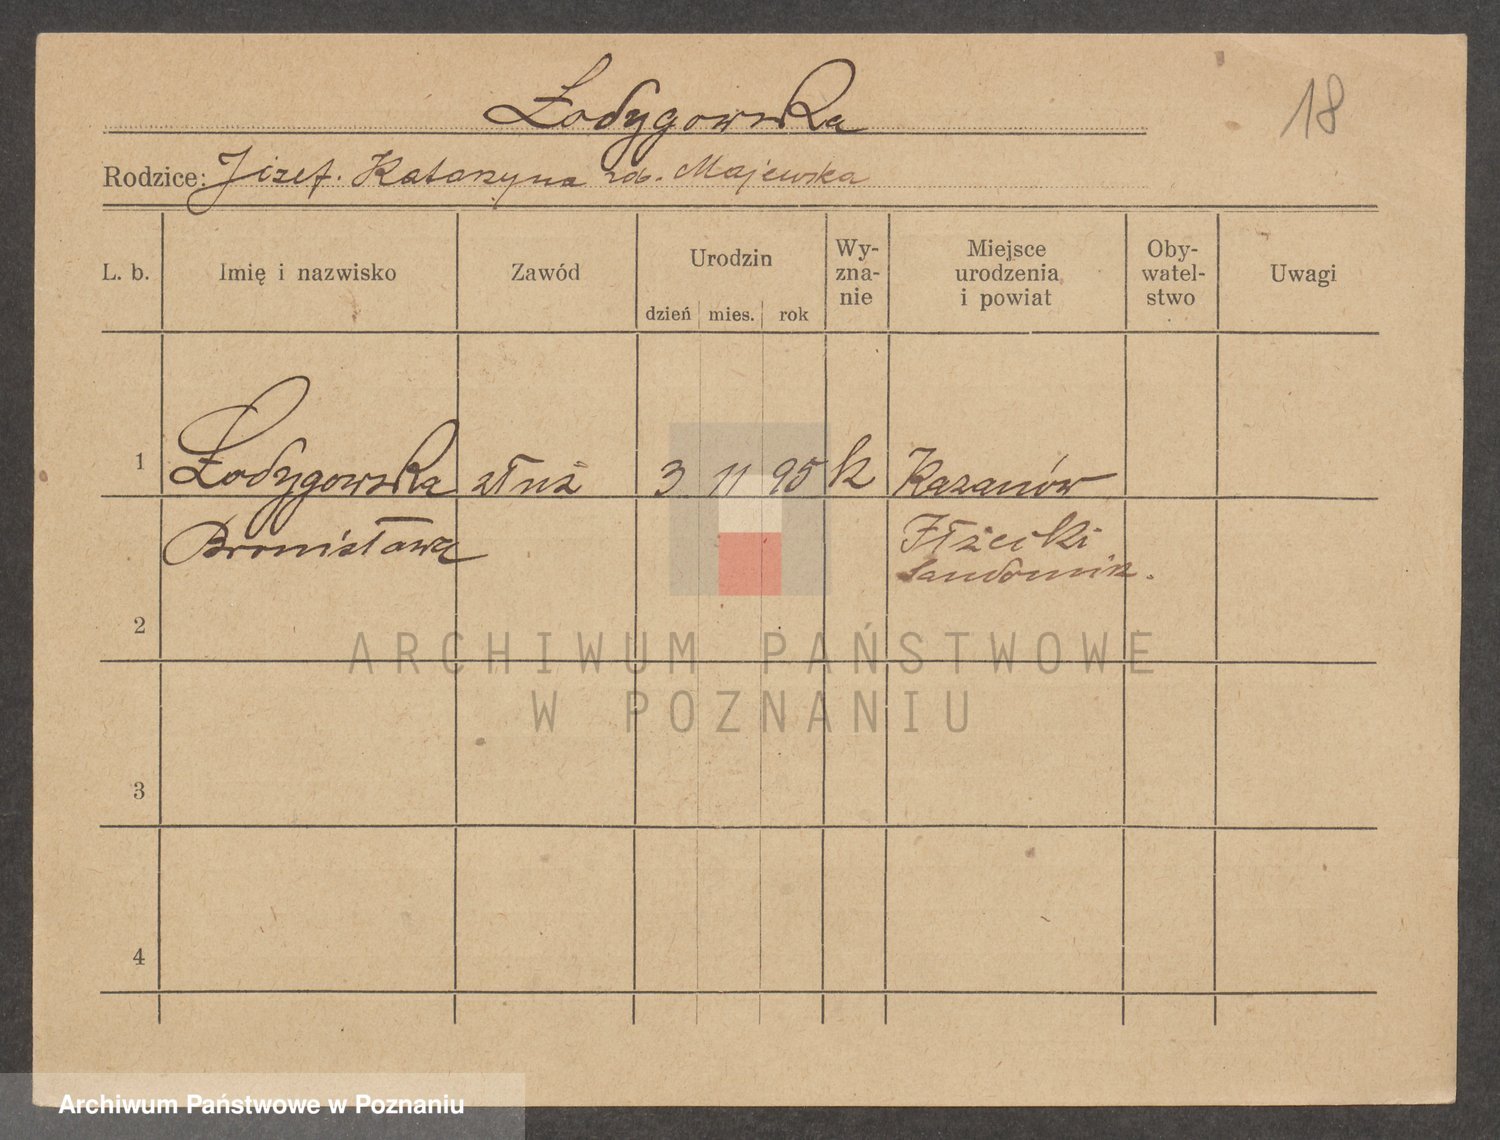 Łodygowska
18
Rodzice: Józef. Katarzyna rod. Majewska
L. b. Imię i nazwisko Zawód Urodzin dzień mies. rok Wy-zna-nie Miejsce urodzenia i powiat Oby-watel-stwo Uwagi
1 Łodygowska służ 3 11 95 k Kazanów
Bronisława Iłżecki
Sandomir.
2
3
4
ARCHIWUM PAŃSTWOWE
W POZNANIU
Archiwum Państwowe w Poznaniu